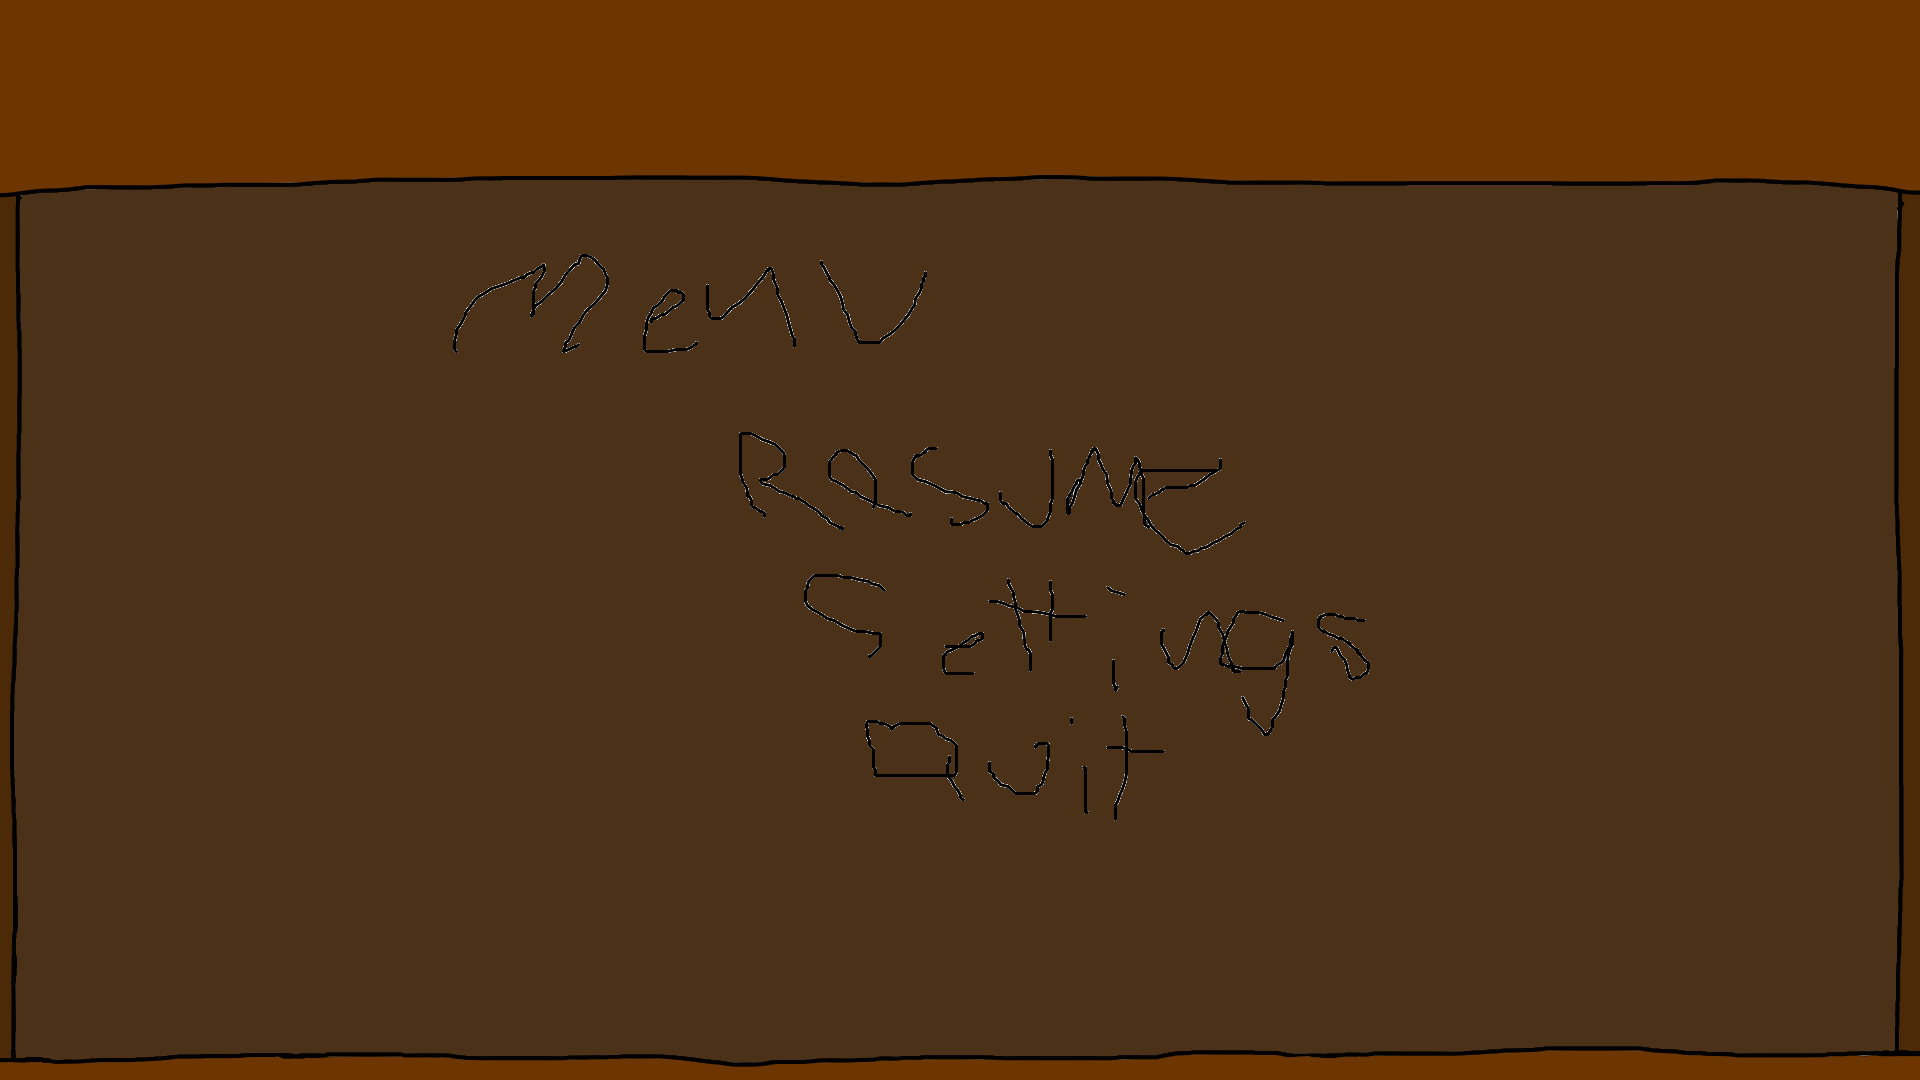 Menu
RasuME
Settings
Quit